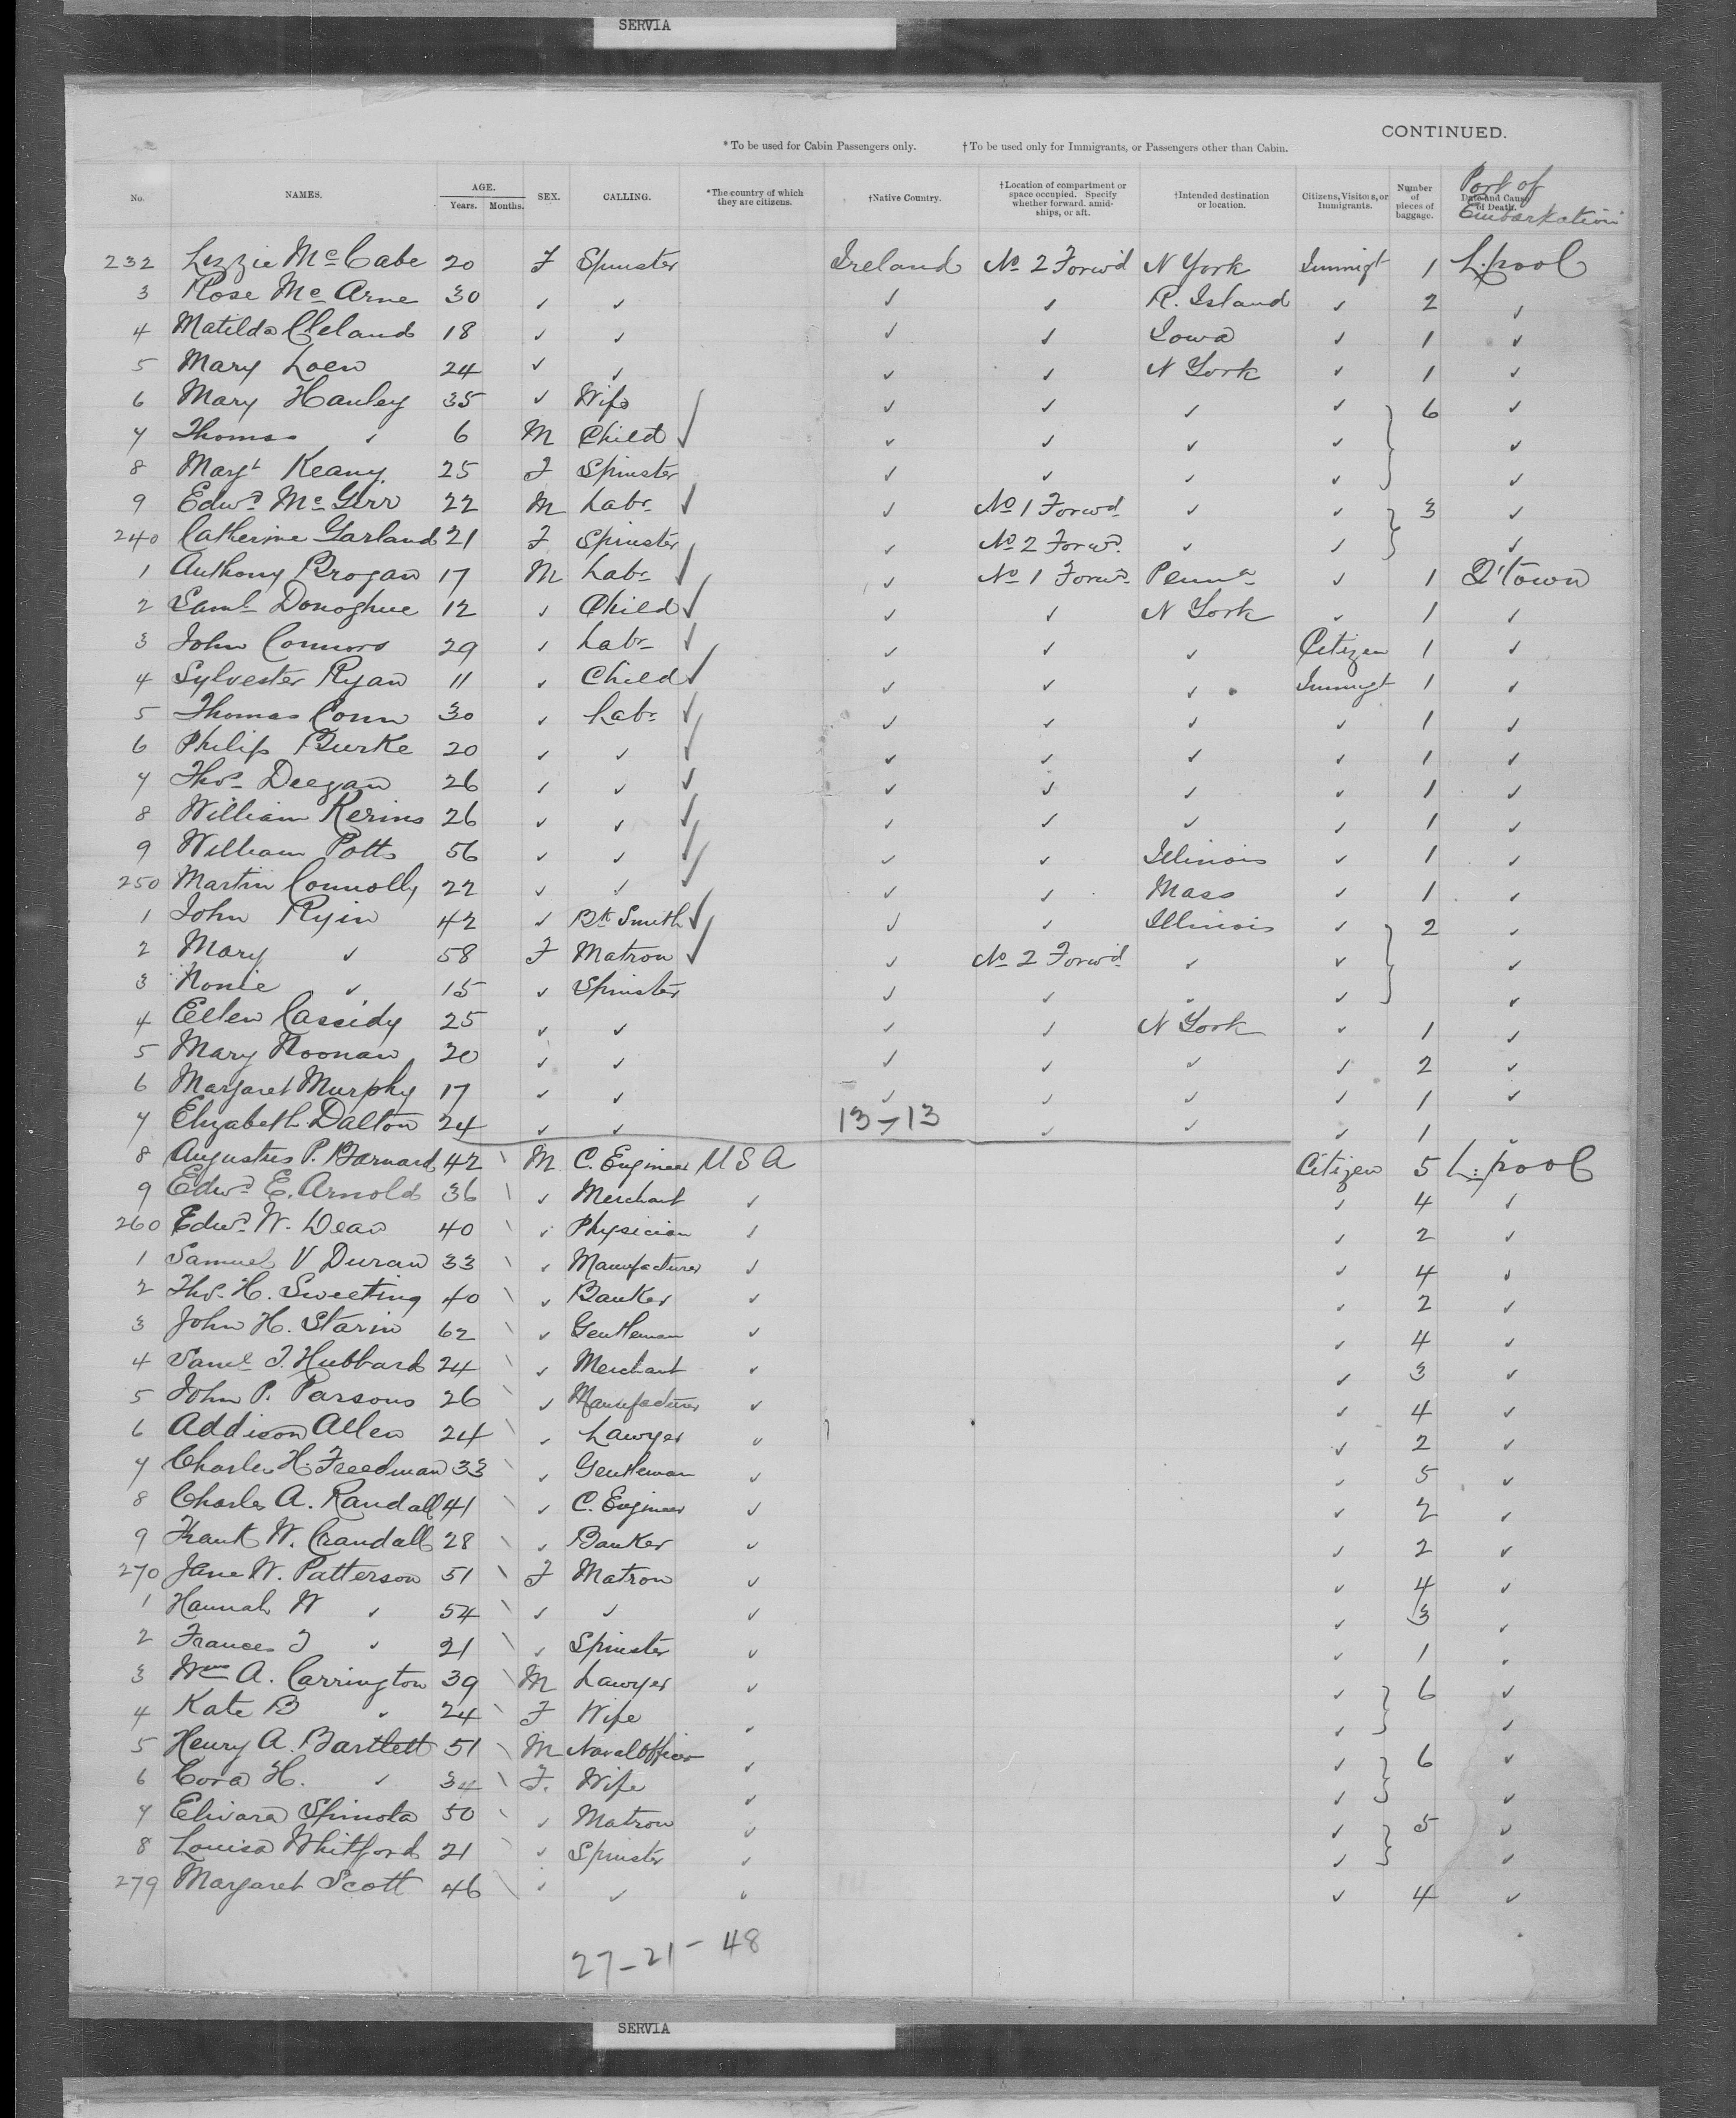 SERVIA
CONTINUED.
* To be used for Cabin Passengers only. † To be used only for Immigrants, or Passengers other than Cabin.
No. NAMES. AGE. Years. Months. SEX. CALLING. *The country of which they are citizens. †Native Country. †Location of compartment or space occupied. Specify whether forward, amidships, or aft. †Intended destination or location. Citizens, Visitors, or Immigrants. Number of pieces of baggage. Date and Cause of Death. Port of Embarkation
232 Lizzie McCabe 20 F Spinster Ireland No 2 Forwd N York Immigt 1 L.pool
3 Rose Mc Arne 30 ✓ ✓ ✓ ✓ R. Island ✓ 2 ✓
4 Matilda Cleland 18 ✓ ✓ ✓ ✓ Iowa ✓ 1 ✓
5 Mary Loen 24 ✓ ✓ ✓ ✓ N York ✓ 1 ✓
6 Mary Hanley 35 ✓ Wife ✓ ✓ ✓ ✓ 6 ✓
7 Thomas ✓ 6 M Child ✓ ✓ ✓ ✓ ✓ ✓
8 Margt Keany 25 F Spinster ✓ ✓ ✓ ✓ ✓
9 Edwd McGirr 22 M Labr ✓ ✓ No 1 Forwd ✓ ✓ 3 ✓
240 Catherine Garland 21 F Spinster ✓ No 2 Forwd ✓ ✓ ✓
1 Anthony Brogan 17 M Labr ✓ ✓ No 1 Forwd Penna ✓ 1 Q'town
2 Saml Donoghue 12 ✓ Child ✓ ✓ ✓ N York ✓ 1 ✓
3 John Connors 29 ✓ Labr ✓ ✓ ✓ ✓ Citizen 1 ✓
4 Sylvester Ryan 11 ✓ Child ✓ ✓ ✓ ✓ Immigt 1 ✓
5 Thomas Conn 30 ✓ Labr ✓ ✓ ✓ ✓ ✓ 1 ✓
6 Philip Burke 20 ✓ ✓ ✓ ✓ ✓ ✓ ✓ 1 ✓
7 Thos Deegan 26 ✓ ✓ ✓ ✓ ✓ ✓ ✓ 1 ✓
8 William Kerins 26 ✓ ✓ ✓ ✓ ✓ ✓ ✓ 1 ✓
9 William Potts 56 ✓ ✓ ✓ ✓ ✓ Illinois ✓ 1 ✓
250 Martin Connolly 22 ✓ ✓ ✓ ✓ ✓ Mass ✓ 1 ✓
1 John Ryin 42 ✓ Bk Smith ✓ ✓ ✓ Illinois ✓ 2 ✓
2 Mary ✓ 58 F Matron ✓ ✓ No 2 Forwd ✓ ✓ ✓
3 Nonie ✓ 15 ✓ Spinster ✓ ✓ ✓ ✓ ✓
4 Ellen Cassidy 25 ✓ ✓ ✓ ✓ N York ✓ 1 ✓
5 Mary Noonan 20 ✓ ✓ ✓ ✓ ✓ ✓ 2 ✓
6 Margaret Murphy 17 ✓ ✓ ✓ ✓ ✓ ✓ 1 ✓
7 Elizabeth Dalton 24 ✓ ✓ 13-13 ✓ ✓ ✓ 1 ✓
8 Augustus P. Barnard 42 M C. Engineer U S A Citizen 5 L.pool
9 Edwd E. Arnold 36 ✓ Merchant ✓ ✓ 4 ✓
260 Edwd W. Dean 40 ✓ Physician ✓ ✓ 2 ✓
1 Samuel V Duran 33 ✓ Manufacturer ✓ ✓ 4 ✓
2 Thos H. Sweeting 40 ✓ Banker ✓ ✓ 2 ✓
3 John H. Starin 62 ✓ Gentleman ✓ ✓ 4 ✓
4 Saml T. Hubbard 24 ✓ Merchant ✓ ✓ 3 ✓
5 John P. Parsons 26 ✓ Manufacturer ✓ ✓ 4 ✓
6 Addison Allen 24 ✓ Lawyer ✓ ✓ 2 ✓
7 Charles H. Freedman 33 ✓ Gentleman ✓ ✓ 5 ✓
8 Charles A. Randall 41 ✓ C. Engineer ✓ ✓ 2 ✓
9 Frank W. Crandall 28 ✓ Banker ✓ ✓ 2 ✓
270 Jane W. Patterson 51 F Matron ✓ ✓ 4 ✓
1 Hannah W ✓ 54 ✓ ✓ ✓ ✓ 3 ✓
2 Frances T ✓ 21 ✓ Spinster ✓ ✓ 1 ✓
3 Wm A. Carrington 39 M Lawyer ✓ ✓ 6 ✓
4 Kate B ✓ 24 F Wife ✓ ✓ ✓
5 Henry A. Bartlett 51 M Naval Officer ✓ ✓ 6 ✓
6 Cora H. ✓ 34 F. Wife ✓ ✓ ✓
7 Elivara Spinola 50 ✓ Matron ✓ ✓ 5 ✓
8 Louisa Whitford 21 ✓ Spinster ✓ ✓ ✓
279 Margaret Scott 46 ✓ ✓ ✓ ✓ 4 ✓
27-21-48
SERVIA